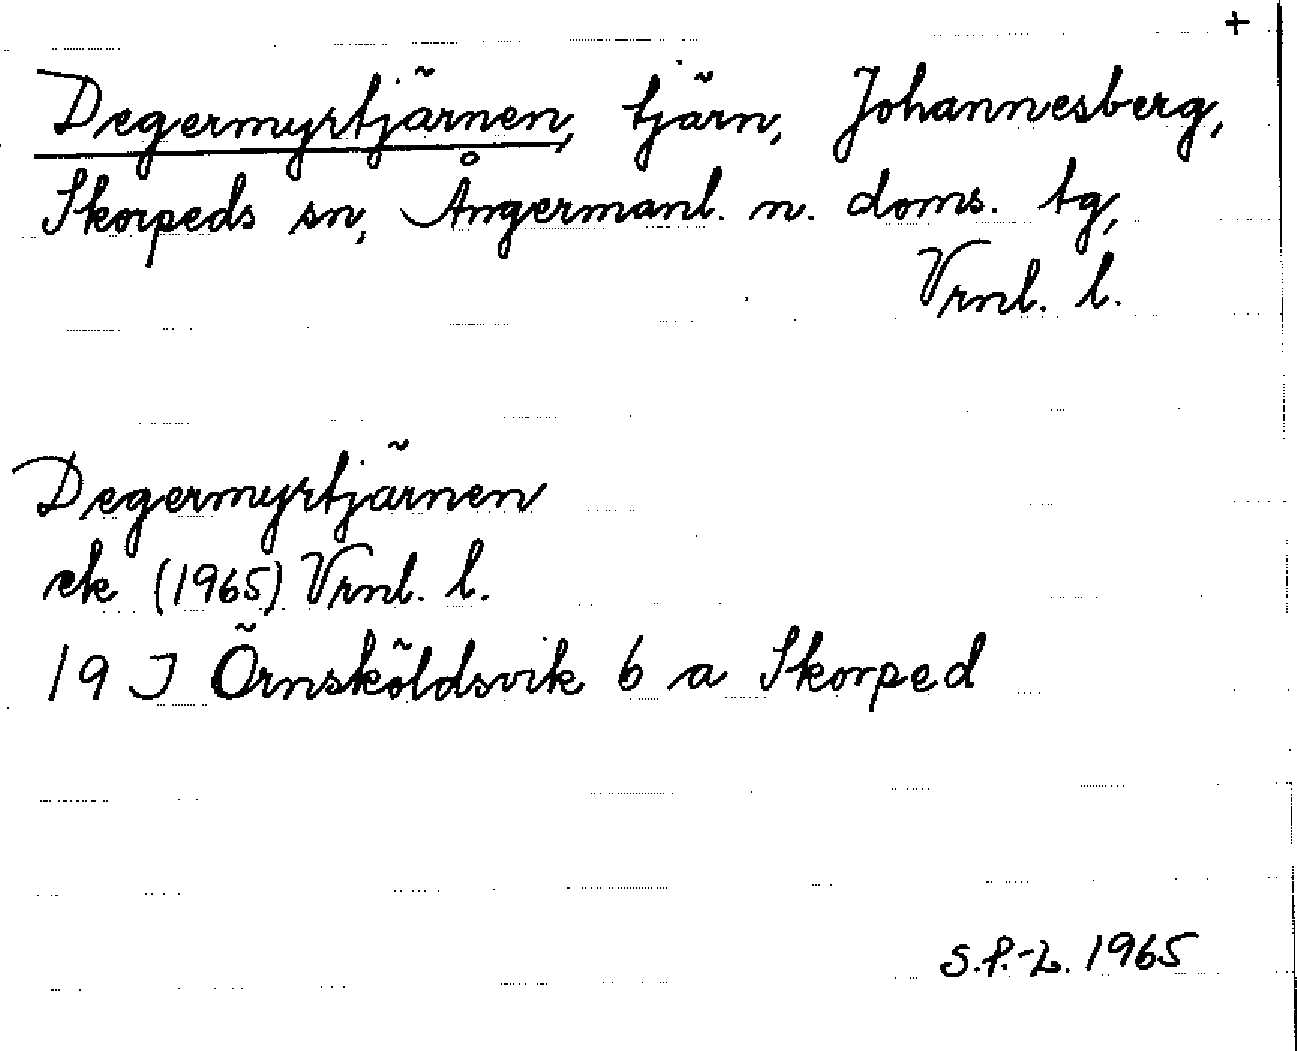 +
Degermyrtjärnen, tjärn, Johannesberg,
Skorpeds sn, Ångermanl. n. doms. tg,
Vrnl. l.
Degermyrtjärnen
ek (1965) Vrnl. l.
19 J Örnsköldsvik 6 a Skorped
S.P.-L. 1965